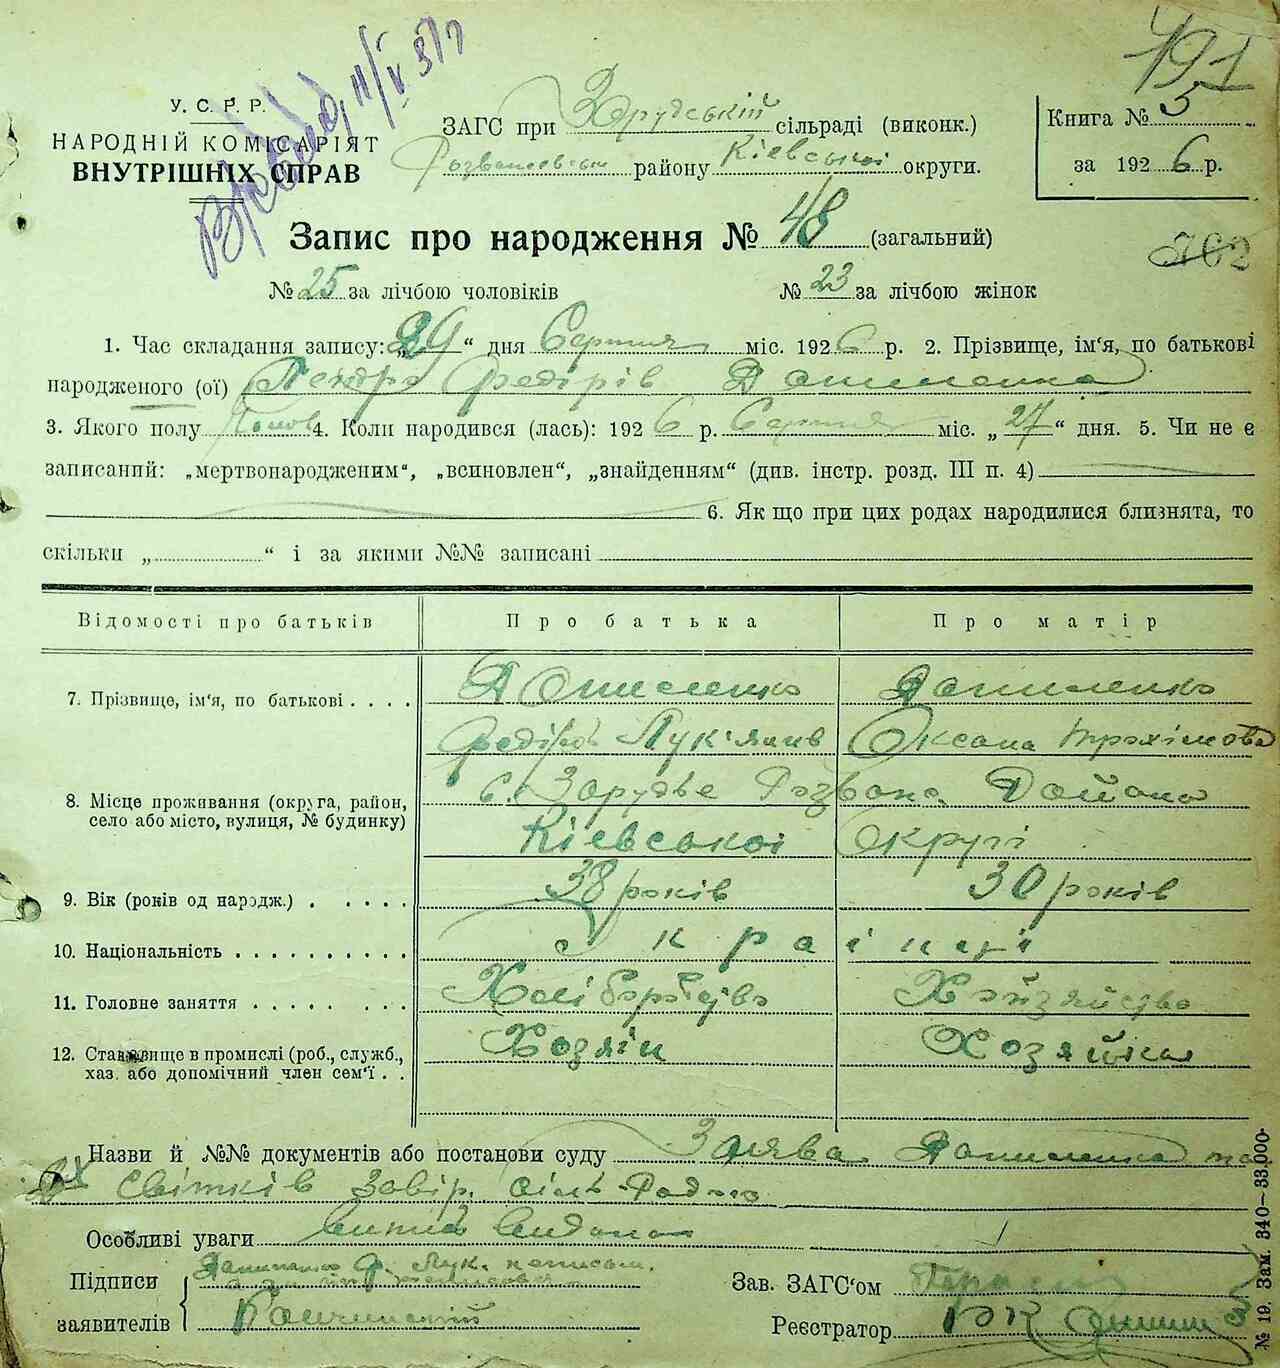 491
У. С. Р. Р.
НАРОДНІЙ КОМІСАРІЯТ
ВНУТРІШНІХ СПРАВ
ЗАГС при Зарудській сільраді (виконк.)
району Кіевської округи.
Книга № 5
за 1926 р.
Запис про народження № 48 (загальний)
702
№ 25 за лічбою чоловіків № 23 за лічбою жінок
1. Час складання запису: „29“ дня Серпня міс. 1926 р. 2. Прізвище, ім'я, по батькові
народженого (ої) Федорів
3. Якого полу 4. Коли народився (лась): 1926 р. Серпня міс. „27“ дня. 5. Чи не є
записаний: „мертвонародженим“, „всиновлен“, „знайденням“ (див. інстр. розд. III п. 4)
6. Як що при цих родах народилися близнята, то
скільки „ “ і за якими №№ записані
Відомості про батьків Про батька Про матір
7. Прізвище, ім'я, по батькові . . . .
Лук'янів Оксана Трохімова
8. Місце проживання (округа, район,
село або місто, вулиця, № будинку)
с. Зарудье Розваж. Району
Кіевської Округі
9. Вік (років од народж.) . . . . . 38 років 30 років
10. Національність . . . . . . . . . . Українці
11. Головне заняття . . . . . . . Хліборобство Хазяйство
12. Становище в промислі (роб., служб.,
хаз. або допомічний член сем'ї . .
Хозяін Хозяйка
Назви й №№ документів або постанови суду Заява та
Світків Завір. сіль-Радою
Особливі уваги
Підписи
заявителів
Зав. ЗАГС'ом
Реєстратор
№ 19. Зам. 340—33.000.